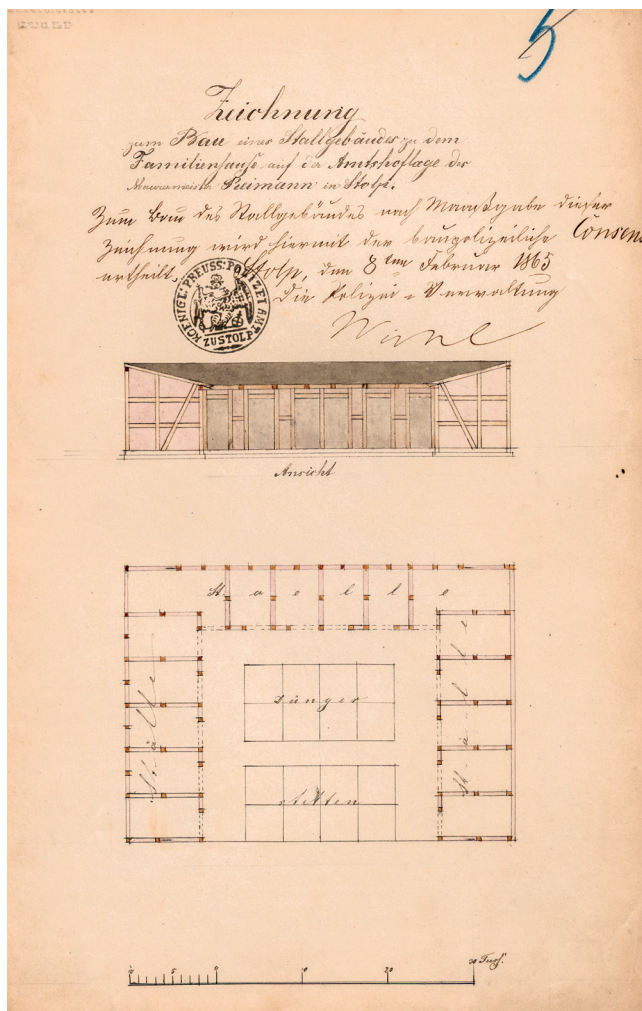 5
Zeichnung
zum Bau eines Stallgebäudes zu dem
Familienhause auf der Amtshoflage des
Reimann in Stolp.
Zum Bau des Stallgebäudes nach Maaßgabe dieser
Zeichnung wird hiermit der baupolizeiliche Consens
ertheilt. Stolp, den 8ten Februar 1865
Die Polizei-Verwaltung
KOENIGL: PREUSS: POLIZEI AMT ZU STOLP
Ansicht
Staelle
Ställe
Ställe
Dünger
stätten
10 5 0 10 20 30 Fuß.